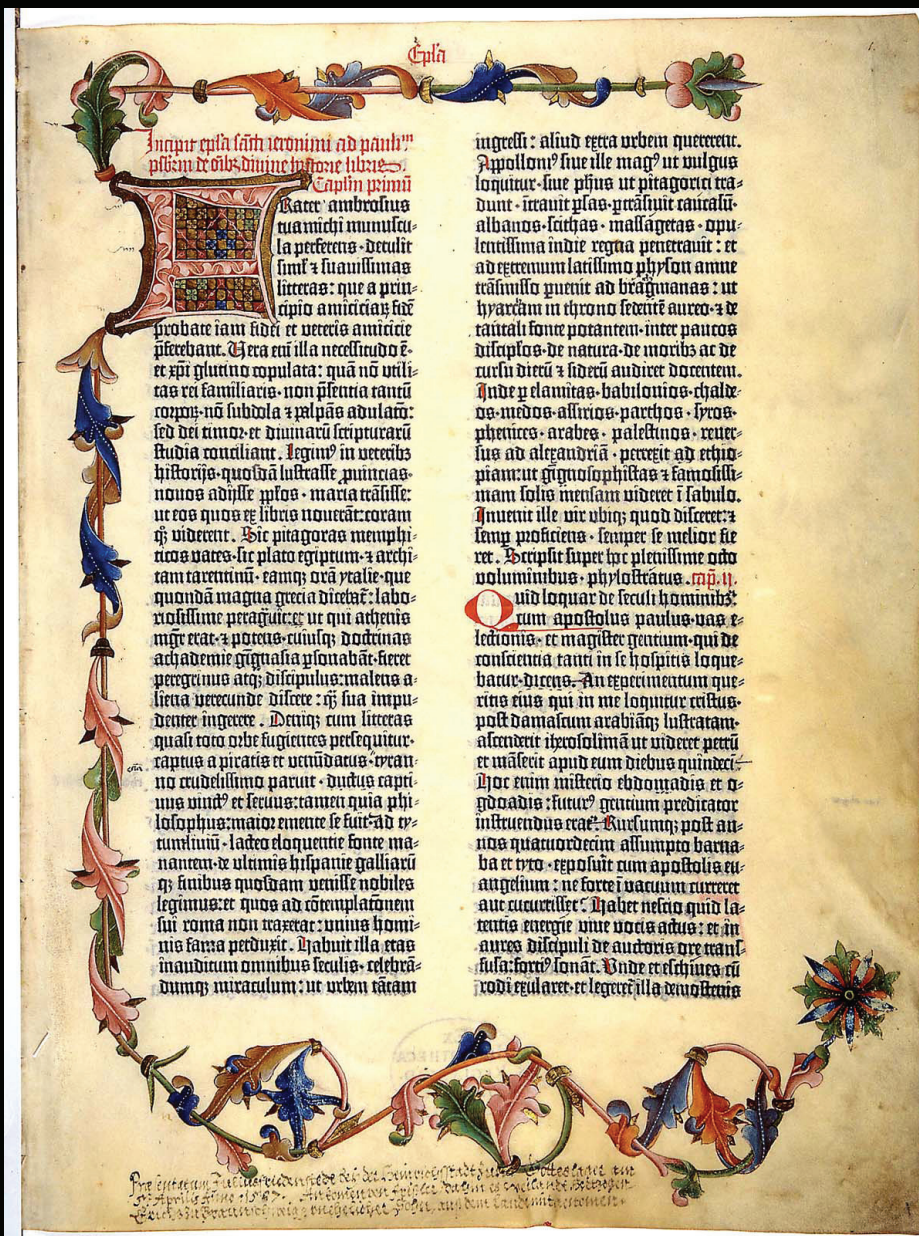 Epl̄a
Incipit epl̄a sancti ieronimi ad paulinum
pr̄sbiterum de om̄ibz divine historie libris
Capl̄m primū
Frater ambrosius
tua michi munuscu-
la perferens · detulit
siml̄ ⁊ suauissimas
litteras: que a prin-
cipio amiciciaꝝ fidē
probate iam fidei et veteris amicicie
p̄ferebant. Uera em̄ illa necessitudo ē·
et xp̄i glutino copulata: quā nō vtili-
tas rei familiaris· non p̄sentia tantū
corpoꝝ· nō subdola ⁊ palpās adulatō:
sed dei timor· et diuinarū scripturarū
studia conciliant. Legimꝰ in veteribz
historijs· quosdā lustrasse ꝓuincias·
nouos adijsse pp̄los· maria trāsisse:
ut eos quos ex libris nouerāt: coram
qꝫ viderent. Sic pitagoras memphi-
ticos vates· sic plato egiptum· ⁊ archi-
tam tarentinū· eamqꝫ orā ytalie· que
quondā magna grecia dicebat̄: labo-
riosissime peragᷓuit: et ut qui athenis
mgr̄ erat· ⁊ potens· cuiusqꝫ doctrinas
achademie gignasia ꝑsonabāt· fieret
peregrinus atqꝫ discipulus: malens a-
liena verecunde discere: qᷓ sua impu-
denter ingerere. Deniqꝫ cum litteras
quasi toto orbe fugientes persequitur·
captus a piratis et venūdatus· tyran-
no crudelissimo paruit· ductus capti-
uus vinctꝰ et seruus: tamen quia phi-
losophus: maior emente se fuit. ad ty-
tumliuiū· lacteo eloquentie fonte ma-
nantem· de vltimis hispanie galliarū
qꝫ finibus quosdam venisse nobiles
legimus: et quos ad cōtemplatōnem
sui roma non traxerat: vnius homi-
nis fama perduxit. Habuit illa etas
inauditum omnibus seculis· celebrā-
dumqꝫ miraculum: ut vrbem tātam
ingressi: aliud extra vrbem quererent.
Apolloniꝰ siue ille magꝰ ut vulgus
loquitur· siue ph̄us ut pitagorici tra-
dunt· ītrauit p̄sas· ꝑtrāsiuit caucasū·
albanos· scithas· massagetas· opu-
lentissima indie regna penetrauit: et
ad extremum latissimo physon amne
trāsmisso ꝑuenit ad bragmanas: ut
hyarcam in throno sedentē aureo· ⁊ de
tātali fonte potantem· inter paucos
discipl̄os· de natura· de moribz ac de
cursu dierū ⁊ siderū audiret docentem.
Inde ꝑ elamitas· babilonios· chalde-
os· medos· assirios· parthos· syros·
phenices· arabes· palestinos· reuer-
sus ad alexandriā· perrexit ad ethio-
piam: ut gignosophistas ⁊ famosissi-
mam solis mensam videret ī sabulo.
Inuenit ille vir vbiqꝫ quod disceret: ⁊
semꝑ proficiens· semper se melior fie
ret. Scripsit super hoc plenissime octo
voluminibus· phylostratus. cap. ii.
Quid loquar de seculi hominibz:
cum apostolus paulus· vas e-
lectionis· et magister gentium· qui de
conscientia tanti in se hospitis loque-
batur· dicens. An experimentum que-
ritis eius qui in me loquitur cristus·
post damascum arabiāqꝫ lustratam·
ascenderit iherosolimā ut videret petrū
et māserit apud eum diebus quindeci·
Hoc enim misterio ebdomadis et o-
gdoadis: futurꝰ gentium predicator
instruendus erat. Rursumqꝫ post an-
nos quatuordecim assumpto barna-
ba et tyto· exposuit cum apostolis eu-
angelium: ne forte ī vacuum curreret
aut cucurrisset. Habet nescio quid la-
tentis energie viue vocis actus: et in
aures discipuli de auctoris ore trans-
fusa: fortiꝰ sonāt. Unde et eschines cū
rodi exularet· et legeret̄ illa demostenis